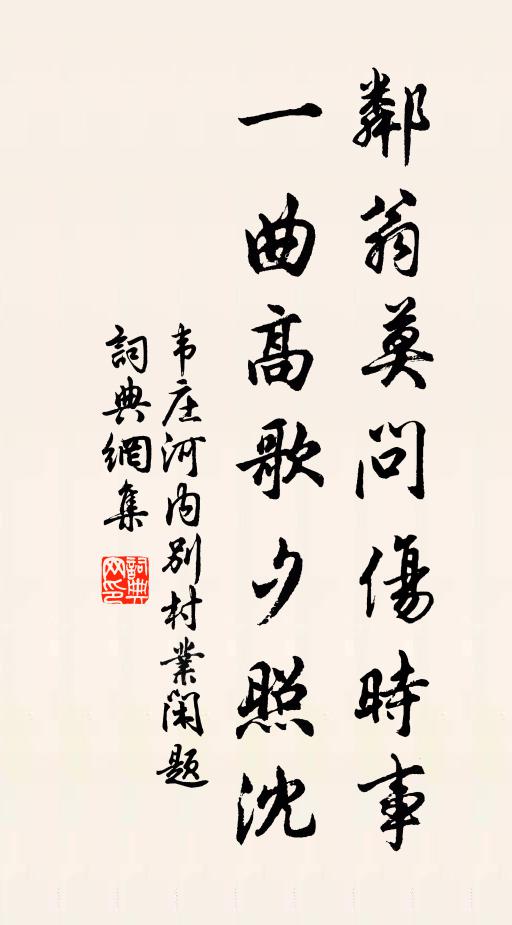 鄰翁莫問傷時事
一曲高歌夕照沈
韦庄河内别村業閑题
詞典網集
詞典网印